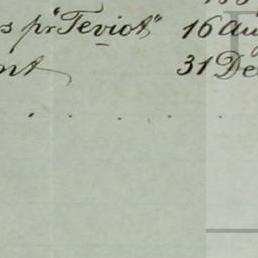 s pr "Teviot" 16 Au
nt 31 De